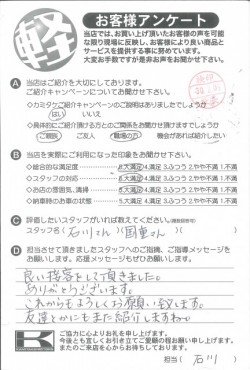 軽
お客様アンケート
当店では、お買い上げ頂いたお客様の声を可能
な限り現場に反映し、お客様により良い商品と
サービスを提供する事に努めています。
大変お手数ですが是非お声をお聞かせ下さい。
A 当店はご紹介を大切にしております。
ご紹介キャンペーンについてお聞かせ下さい。
◇カミタケご紹介キャンペーンのご説明はありましたでしょうか
はい いいえ
◇具体的にご紹介頂ける方とのご関係をお聞かせ頂けますでしょうか
ご親族 ご友人 職場の方 機会があれば紹介したい
B 当店を実際にご利用になった印象をお聞かせ下さい。
◇総合的な満足度 5.大満足 4.満足 3.ふつう 2.やや不満 1.不満
◇スタッフの対応 5.大満足 4.満足 3.ふつう 2.やや不満 1.不満
◇お店の雰囲気、清掃 5.大満足 4.満足 3.ふつう 2.やや不満 1.不満
◇納車時のお車の状態 5.大満足 4.満足 3.ふつう 2.やや不満 1.不満
C 評価したいスタッフがいれば教えてください。(複数回答可)
スタッフ名( 石川さん 国重さん )
D 担当させて頂きましたスタッフへのご指摘、ご指導メッセージを
お願いします。ご応援メッセージもぜひお聞かせ下さい。
良い接客をして頂きました。
ありがとうございます。
これからもよろしくお願い致します。
友達とかにもまた紹介しますねー
K
ご協力に心よりお礼を申し上げます。
今後とも宜しくお引き立てご愛顧の程お願い申し上げます。
またのご来店を心からお待ちしております。
担当( 石川 )